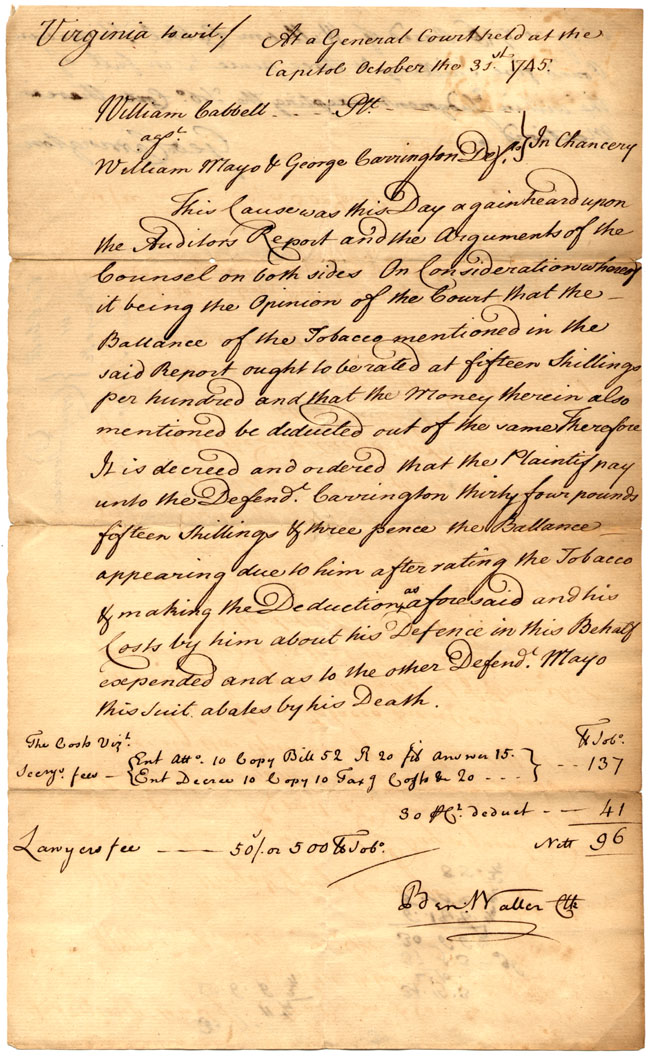 Virginia to wit./ At a General Court held at the
Capitol October the 31.st 1745.
William Cabbell Plt.
agst.
William Mayo & George Carrington Def.ts } In Chancery
This Cause was this Day again heard upon
the Auditors Report and the Arguments of the
Counsel on both sides On Consideration whereof
it being the Opinion of the Court that the
Ballance of the Tobacco mentioned in the
said Report ought to be rated at fifteen Shillings
per hundred and that the Money therein also
mentioned be deducted out of the same Therefore
It is decreed and ordered that the Plaintif pay
unto the Defend.t Carrington thirty four pounds
fifteen Shillings & three pence the Ballance
appearing due to him after rating the Tobacco
& making the Deduction as aforesaid and his
Costs by him about his Defence in this Behalf
expended and as to the other Defend.t Mayo
this Suit abates by his Death.
The Costs Vizt. lb Tobo.
Secrys. fees { Ent Atto. 10 Copy Bill 52 Answer 15.
Ent Decree 10 Copy 10 Taxg Costs &c 20 } 137
30 p Ct. deduct 41
Lawyers fee 50/. or 500 lb Tobo. Nett 96
Ben: Waller Clk